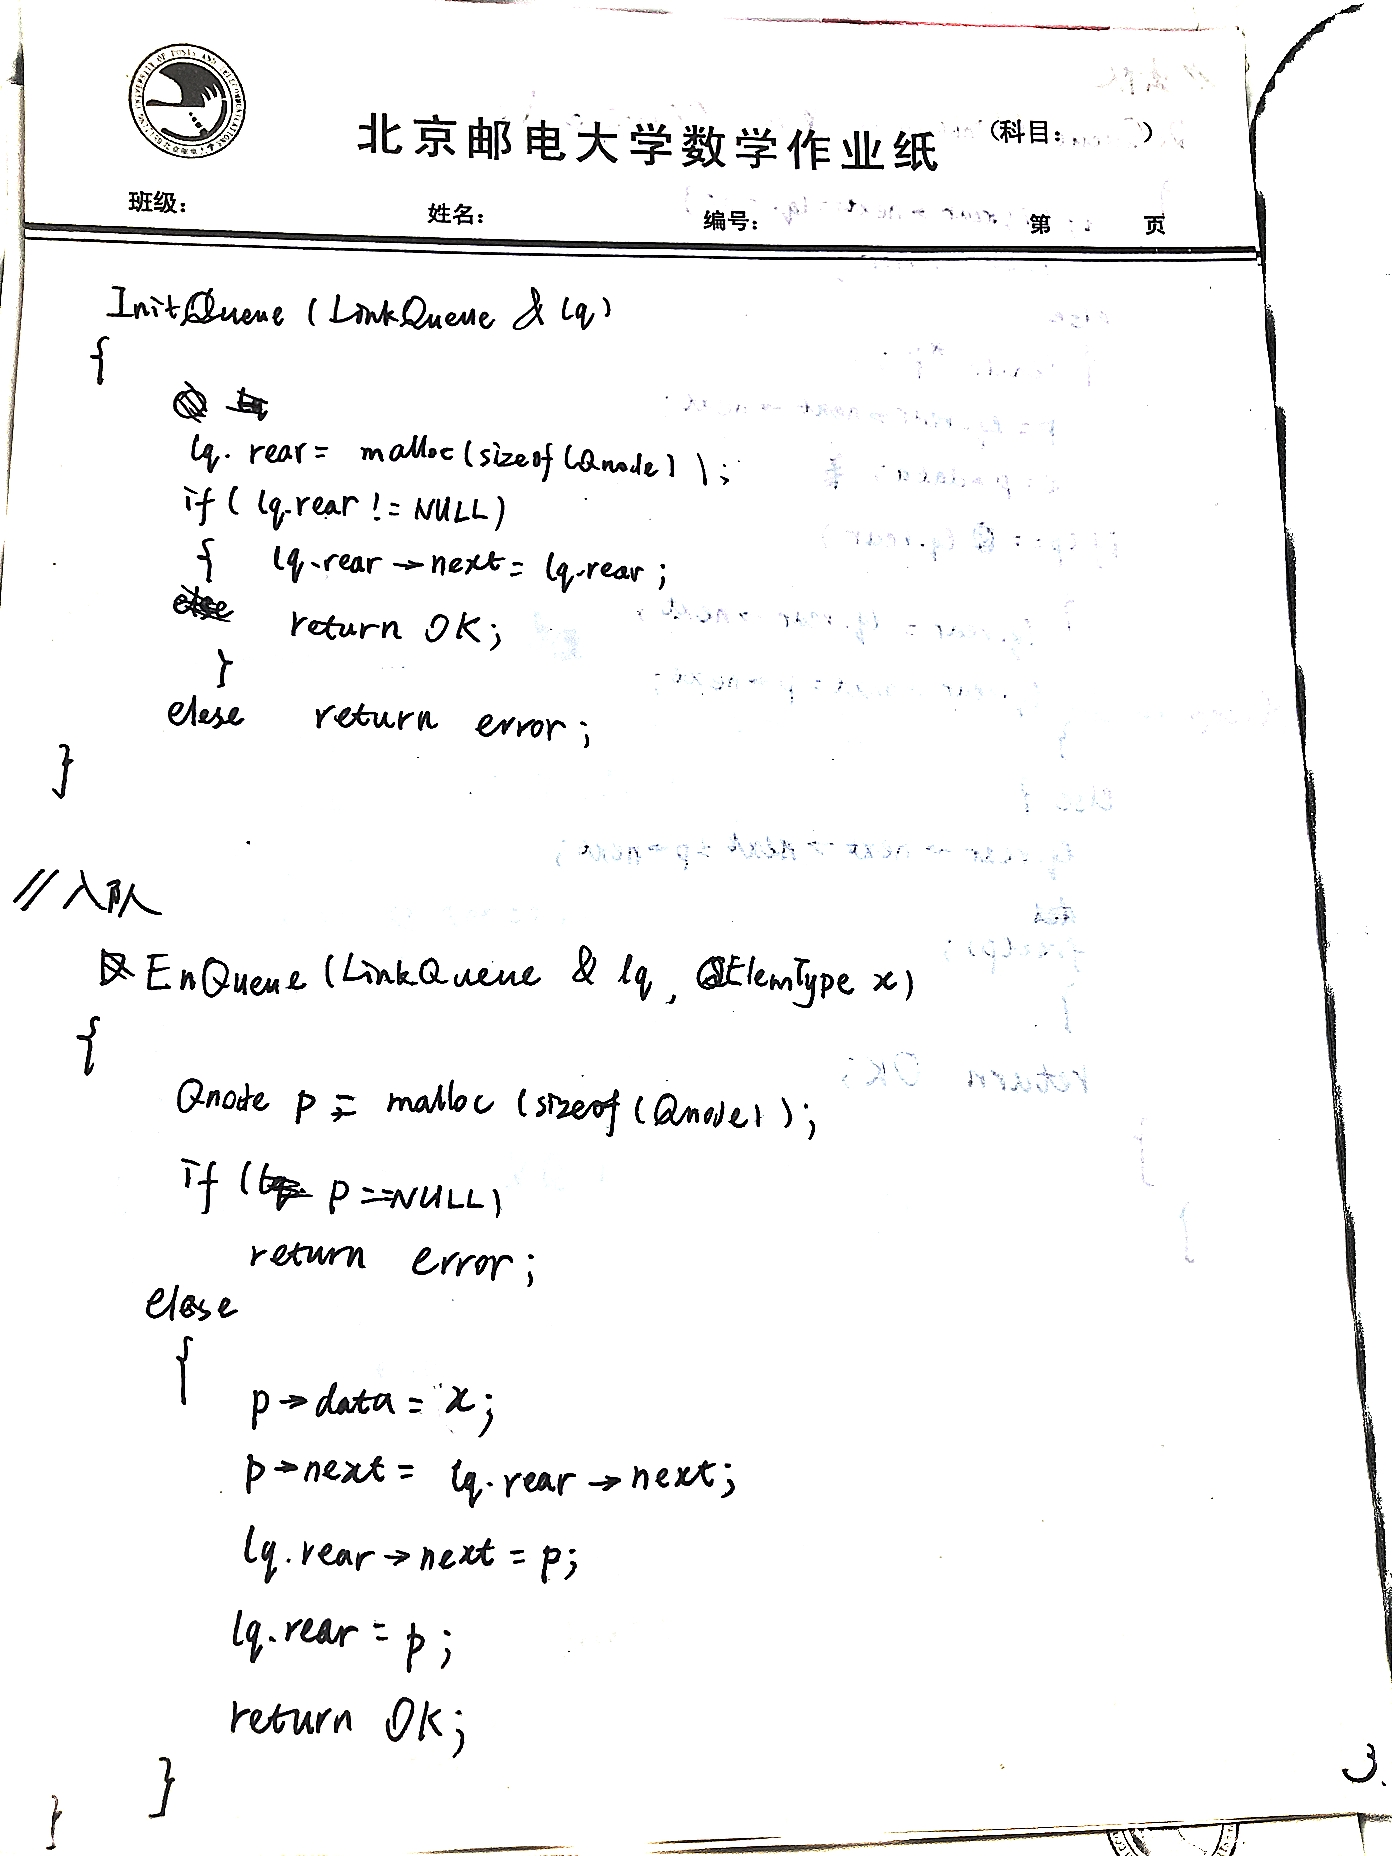 北京邮电大学数学作业纸 (科目: )
班级: 姓名: 编号: 第 页
InitQueue (LinkQueue & lq)
{
lq. rear = malloc (sizeof (Qnode) );
if ( lq.rear != NULL)
{ lq.rear → next = lq.rear ;
return OK;
}
else return error ;
}
// 入队
EnQueue (LinkQueue & lq, QElemType x)
{
Qnode p = malloc (sizeof (Qnode) );
if ( p ==NULL)
return error ;
else
{
p → data = x;
p → next = lq. rear → next;
lq. rear → next = p;
lq. rear = p ;
return OK;
}
}
3.